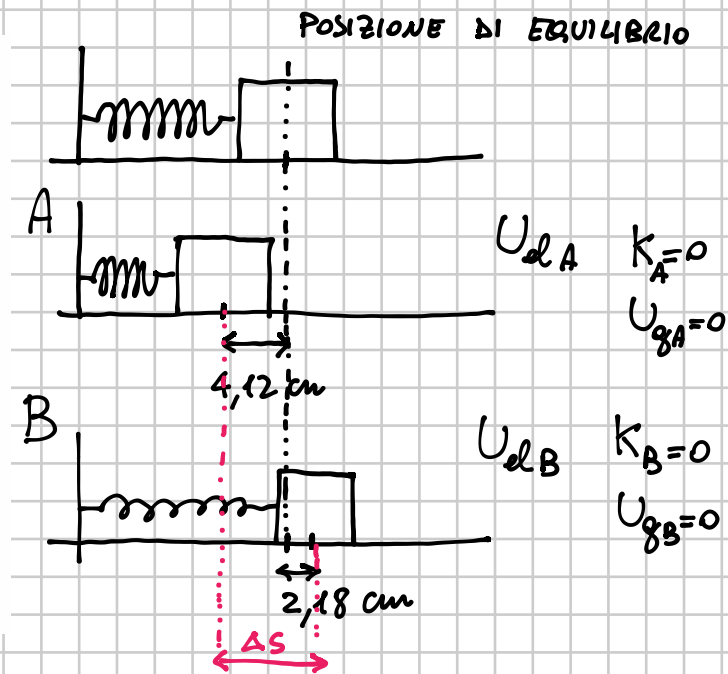 POSIZIONE DI EQUILIBRIO
A
U_elA K_A=0
U_gA=0
4,12 cm
B
U_elB K_B=0
U_gB=0
2,18 cm
ΔS